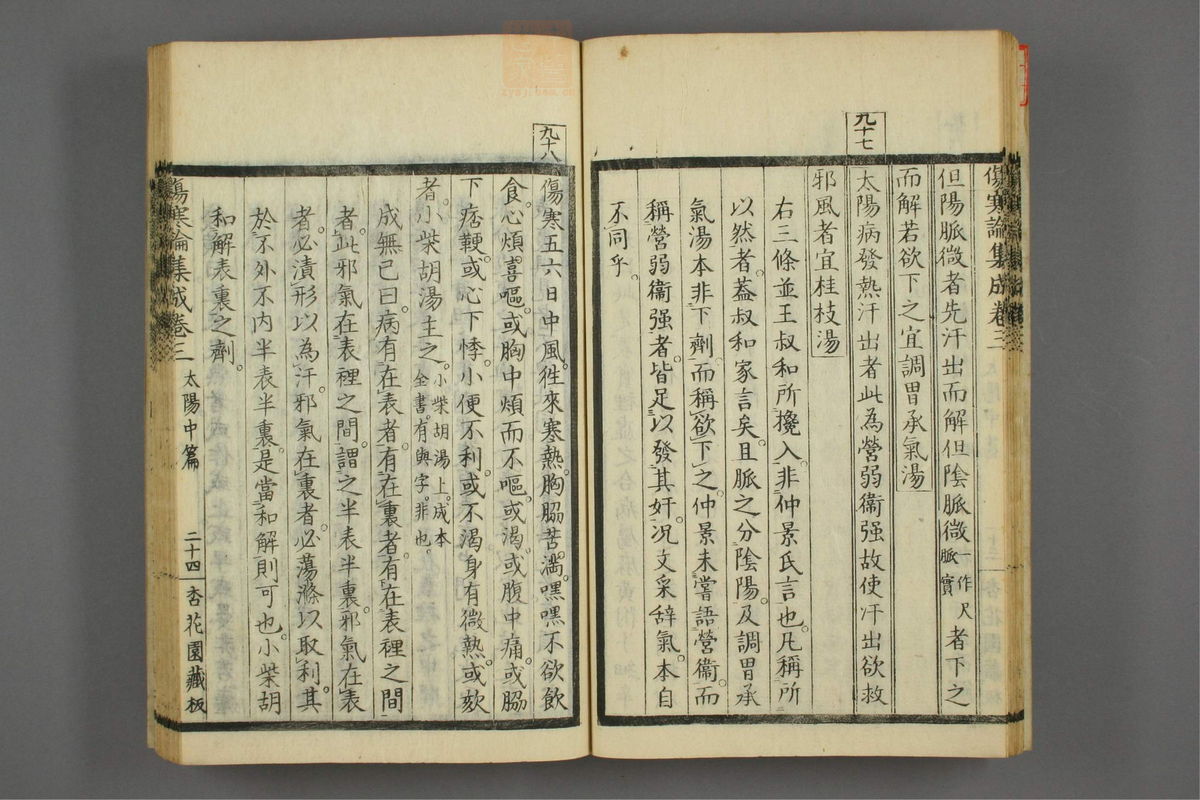 九十七
傷寒論集成卷三
但陽脈微者先汗出而解但陰脈微一作尺脈實者下之
而解若欲下之宜調胃承氣湯
太陽病發熱汗出者此為營弱衞强故使汗出欲救
邪風者宜桂枝湯
右三條並王叔和所攙入。非仲景氏言也。凡稱所
以然者。蓋叔和家言矣。且脈之分陰陽。及調胃承
氣湯本非下劑。而稱欲下之。仲景未嘗語營衞。而
稱營弱衞强者。皆足以發其奸。况文采辞氣。本自
不同乎。
九十八
傷寒五六日中風。徃來寒熱。胸脇苦滿。嘿嘿不欲飲
食。心煩。喜嘔。或胸中煩而不嘔。或渴。或腹中痛。或脇
下痞鞕。或心下悸。小便不利。或不渴。身有微熱。或欬
者。小柴胡湯主之。小柴胡湯上。成本全書。有與字。非也。
成無已曰。病有在表者。有在裏者。有在表裡之間
者。此邪氣在表裡之間。謂之半表半裏。邪氣在表
者。必漬形以為汗。邪氣在裏者。必蕩滌以取利。其
於不外不内半表半裏。是當和解則可也。小柴胡
和解表裏之劑。
傷寒論集成卷三 太陽中篇 二十四 杏花園藏板